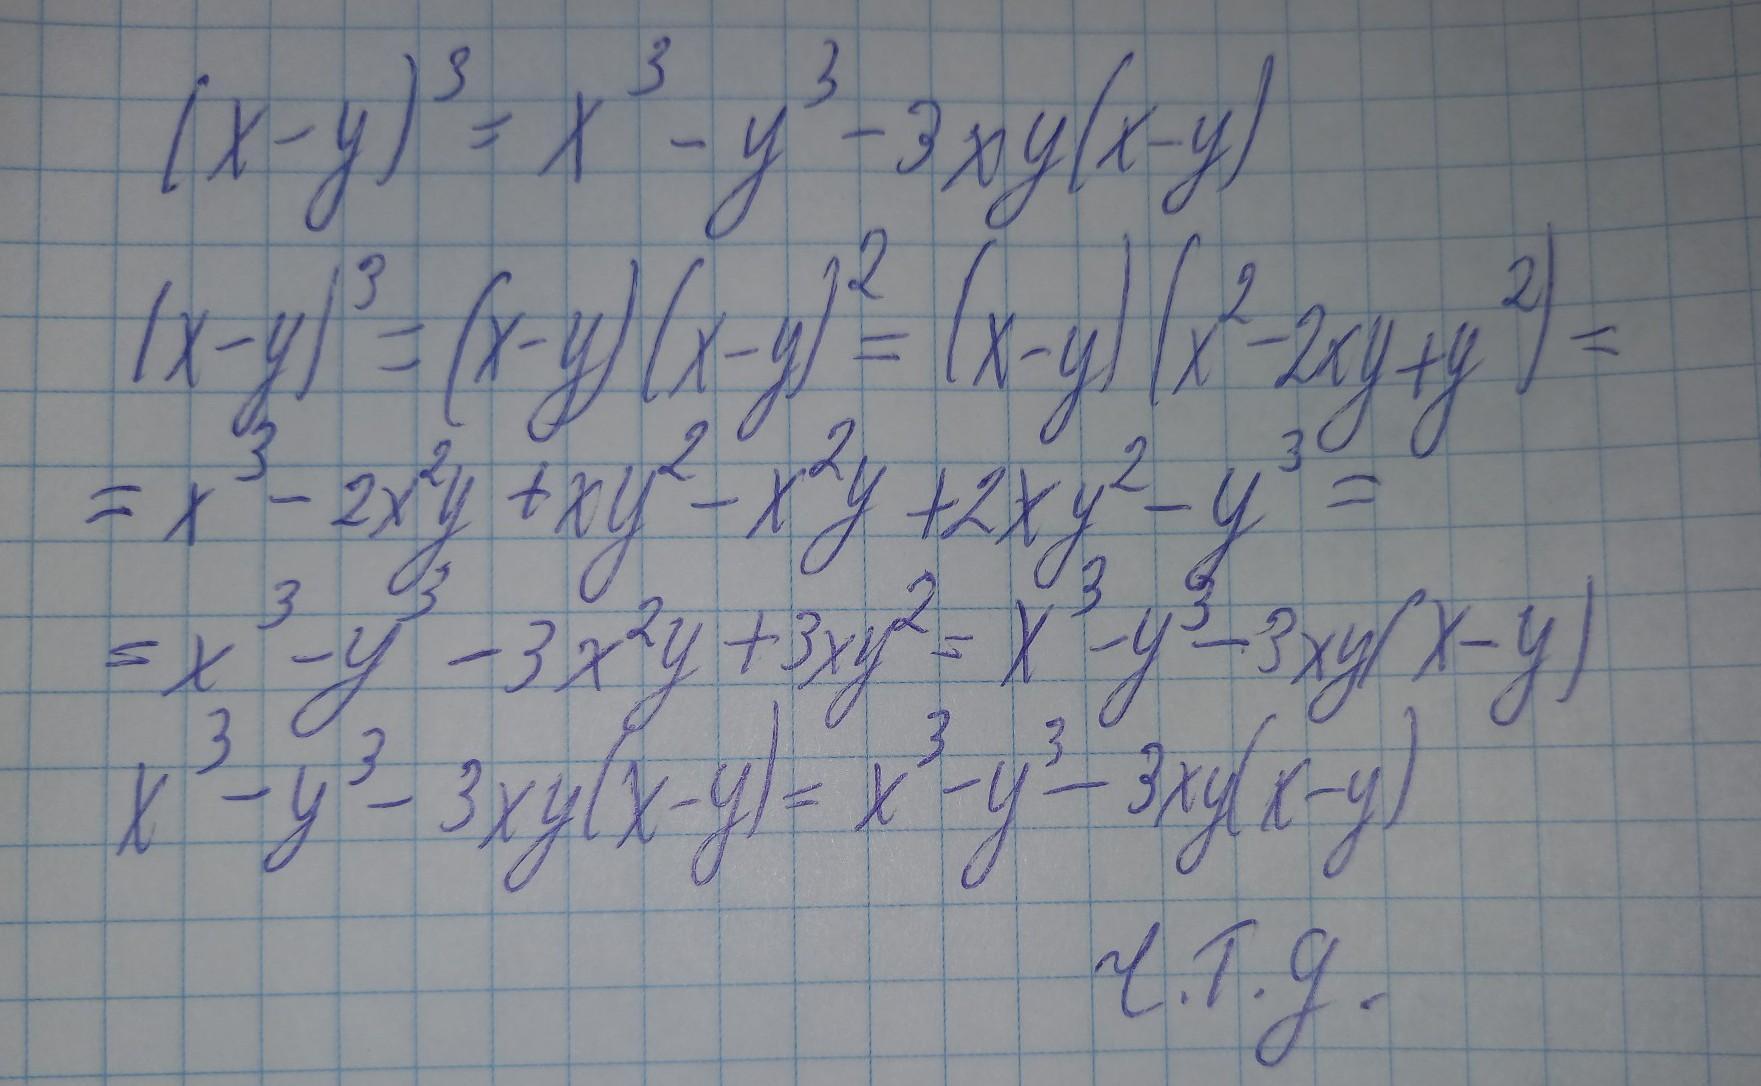 (x-y)³ = x³ - y³ - 3xy(x-y)
(x-y)³ = (x-y)(x-y)² = (x-y)(x² - 2xy + y²) =
= x³ - 2x²y + xy² - x²y + 2xy² - y³ =
= x³ - y³ - 3x²y + 3xy² = x³ - y³ - 3xy(x-y)
x³ - y³ - 3xy(x-y) = x³ - y³ - 3xy(x-y)
ч.т.д.